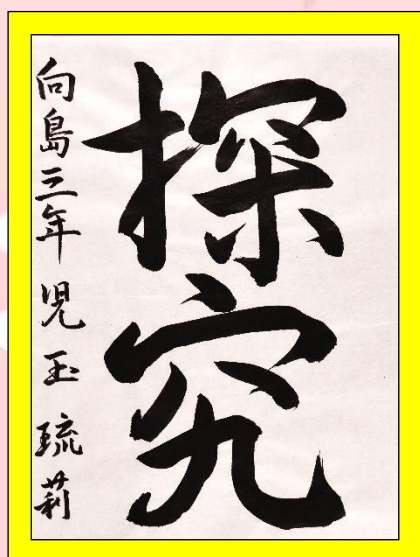 探究
向島三年 児玉琉莉